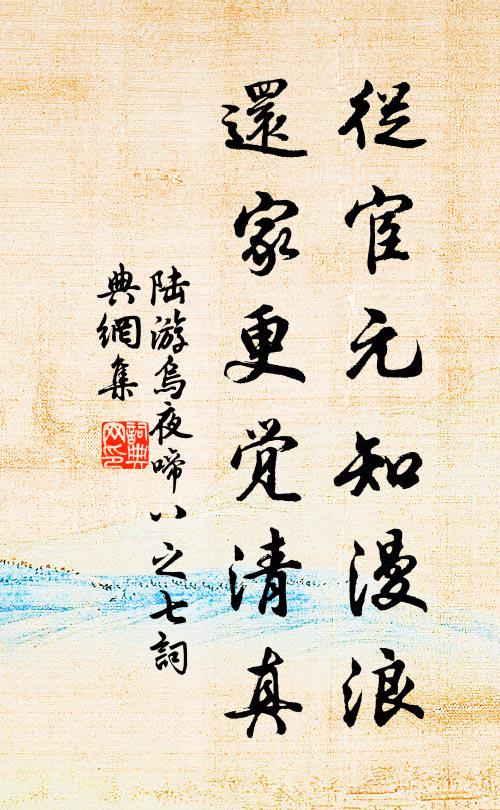 從宦元知漫浪
還家更覺清真
陸游烏夜啼八之七詞
典網集
詞典